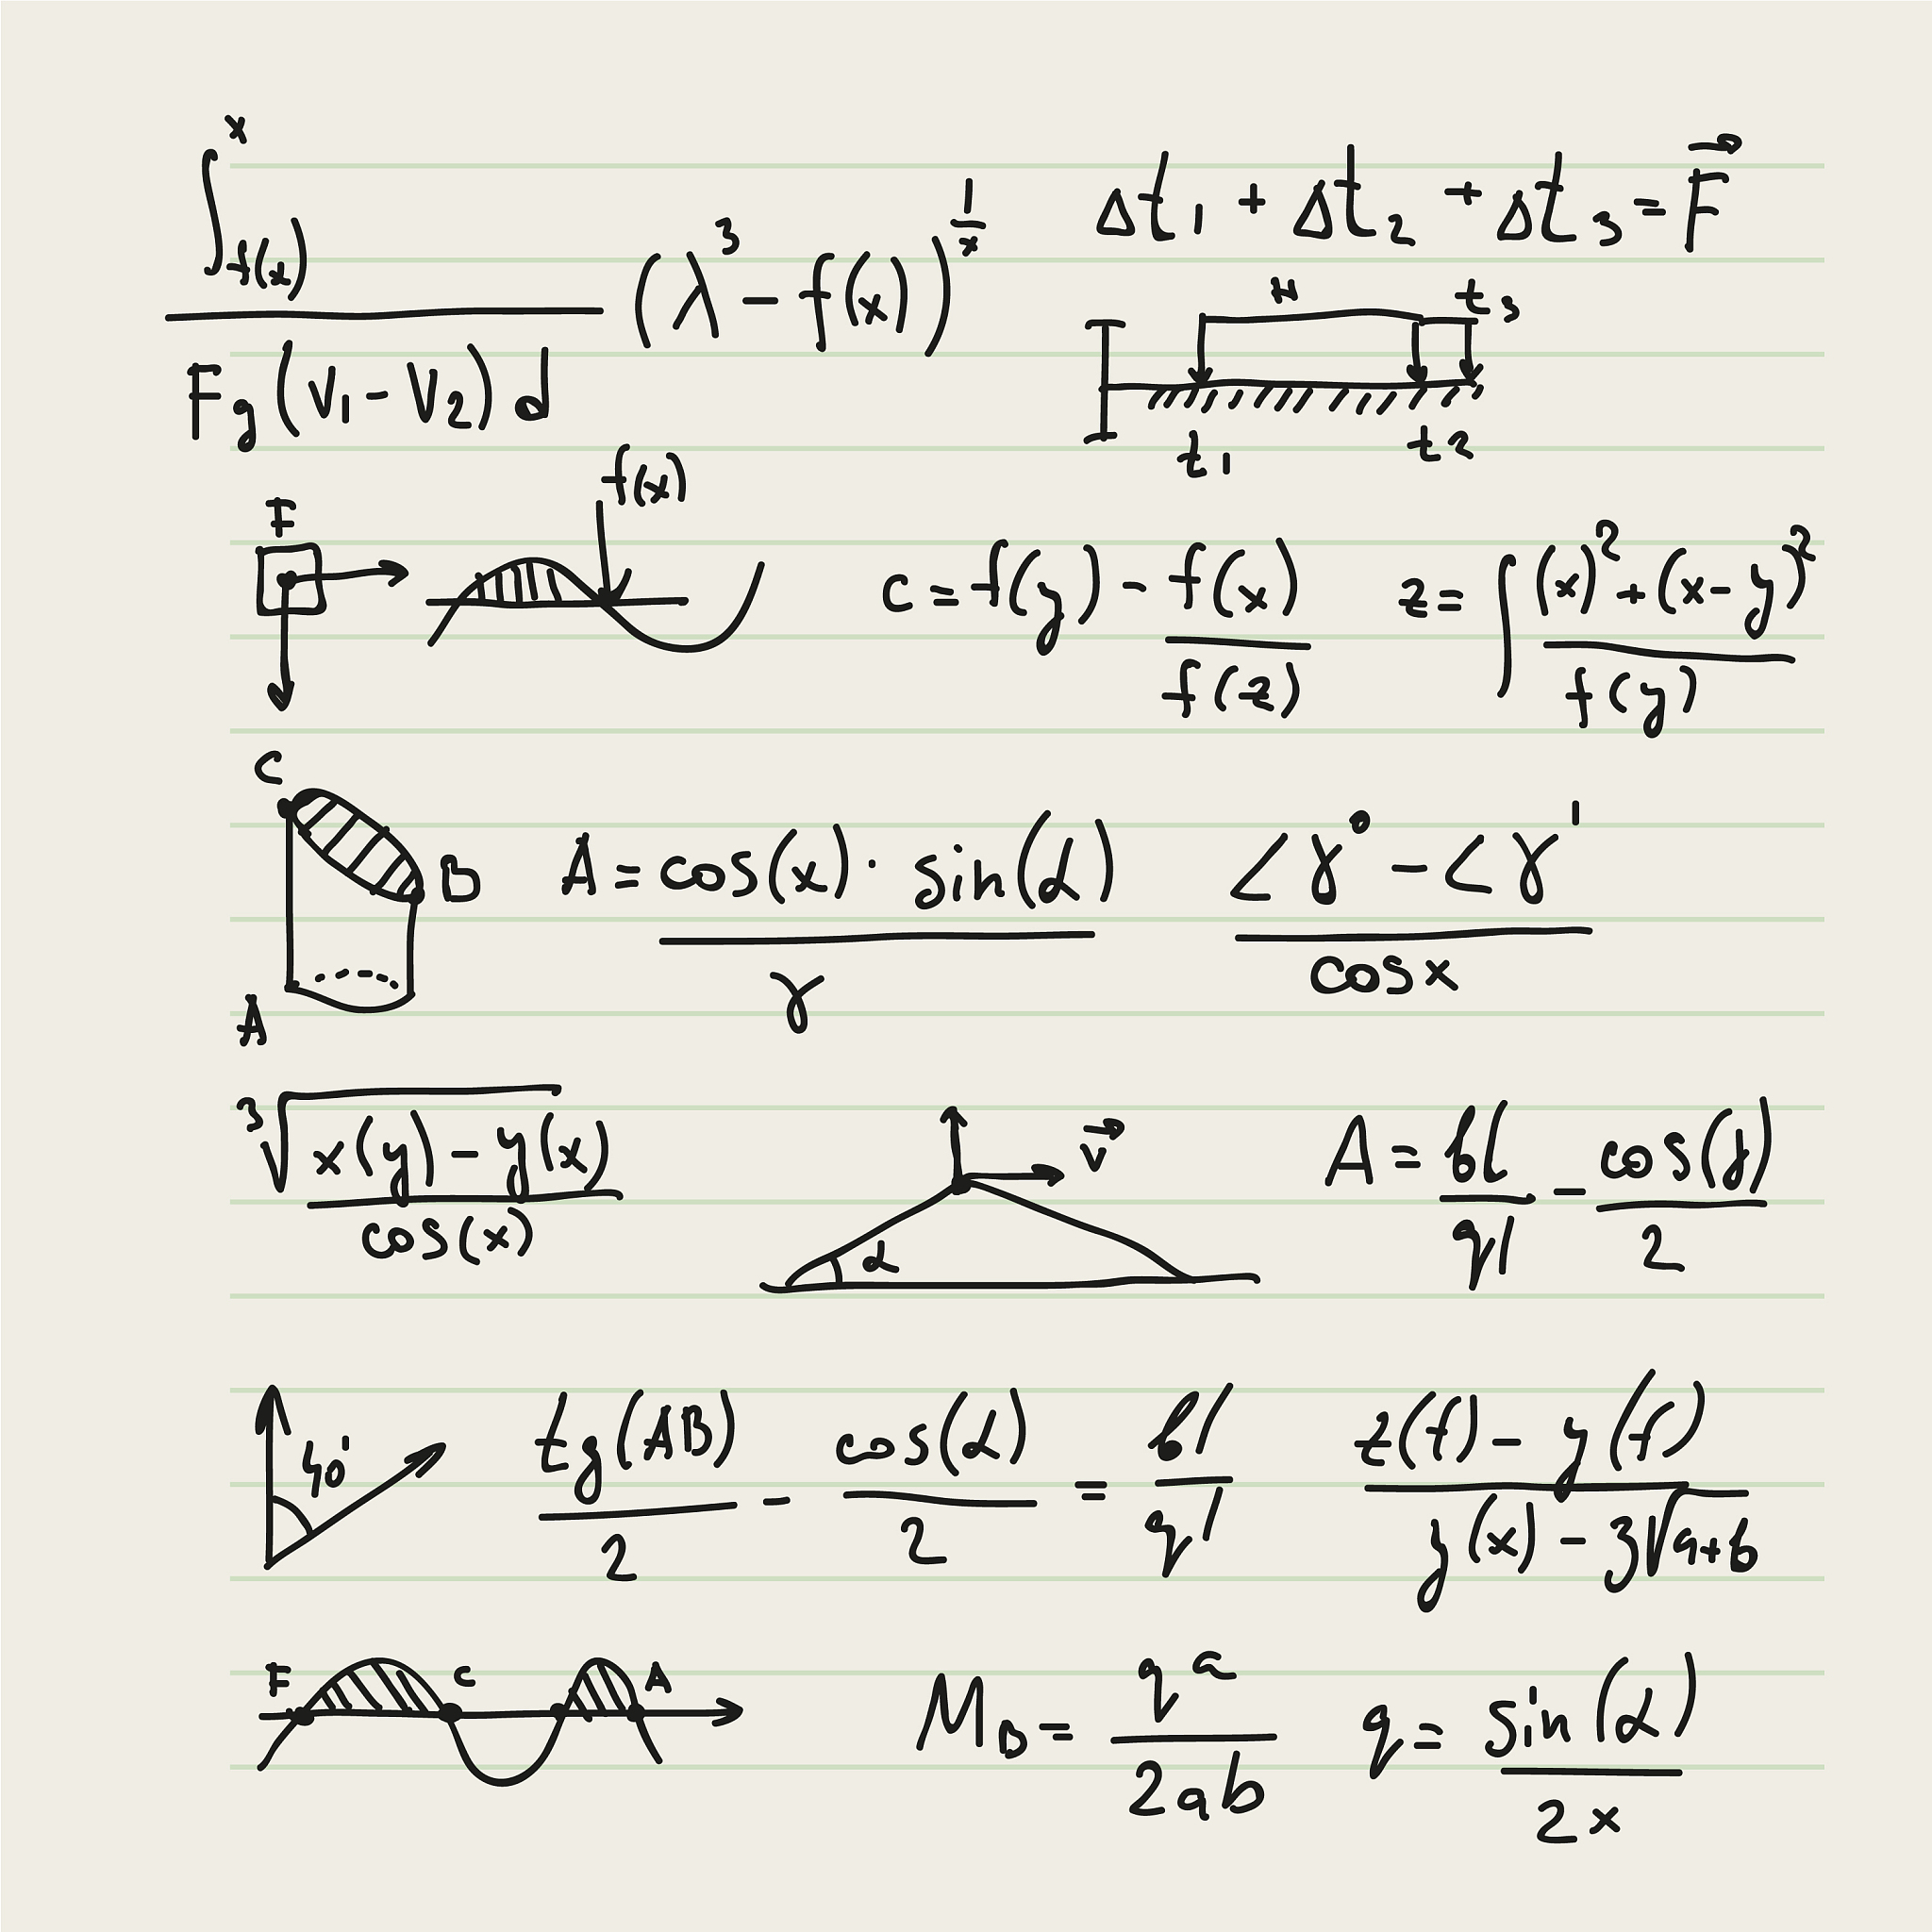 ∫ₓ f(x)
(λ³ - f(x))^(1/x)
Fg(V₁ - V₂)d
Δt₁ + Δt₂ + Δt₃ = F⃗
t₃
t₁ t₂
F f(x)
c = f(y) - f(x)/f(z)
z = ∫ ((x)² + (x-y)²)/f(y)
C
B
A
A = (cos(x) · sin(α))/γ
(∠γ° - ∠γ')/cosx
³√(x(y) - y(x))/cos(x)
v⃗
α
A = bl/ql - cos(y)/2
40°
tg(AB)/2 - cos(α)/2 = bl/ql
(z(f) - y(f))/(y(x) - 3√(a+b))
F C A
M_B = q^a/2ab
q = sin(α)/2x